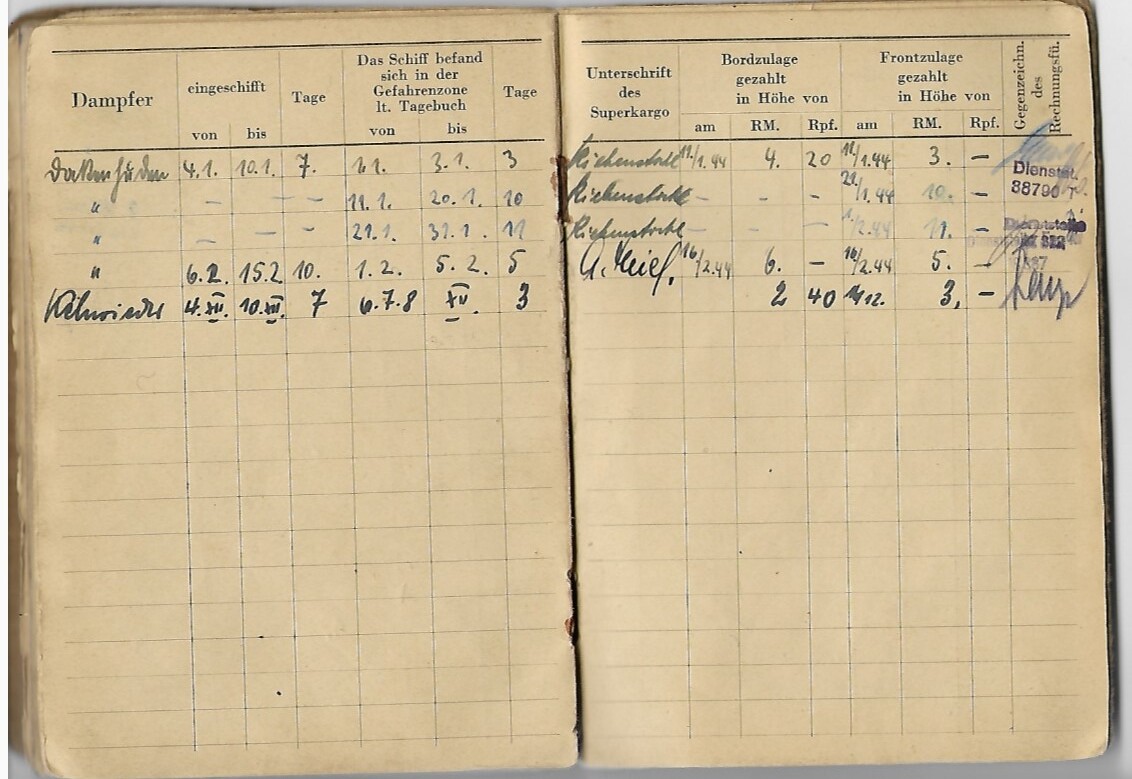 Dampfer eingeschifft von bis Tage Das Schiff befand sich in der Gefahrenzone lt. Tagebuch von bis Tage Unterschrift des Superkargo Bordzulage gezahlt in Höhe von am RM. Rpf. Frontzulage gezahlt in Höhe von am RM. Rpf. Gegenzeichn. des Rechnungsfü.
4.1. 10.1. 7. 1.1. 3.1. 3 11/1.44 4. 20 11/1.44 3. –
" – – – 11.1. 20.1. 10 – – – 21./1.44 10. –
" – – – 21.1. 31.1. 11 – – – 1./2.44 11. –
" 6.2. 15.2 10. 1.2. 5.2. 5 16/2.44 6. – 16/2.44 5. –
4.XII. 10.XII. 7 6.7.8 XII 3 2 40 3, –
Dienstst.
38790